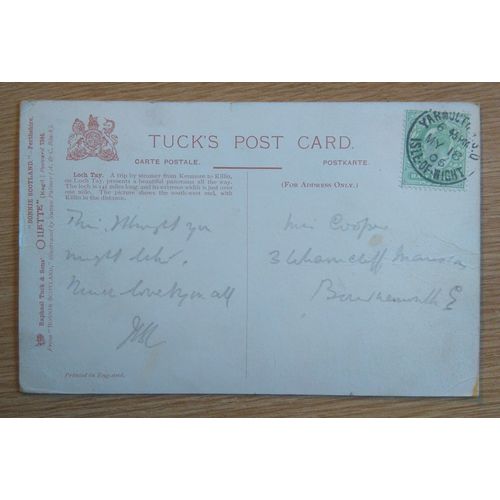 "BONNIE SCOTLAND."—Perthshire.
Raphael Tuck & Sons' OILETTE" [Regd.]
TUCK'S POST CARD.
CARTE POSTALE. POSTKARTE.
Loch Tay. A trip by steamer from Kenmore to Killin,
on Loch Tay, presents a beautiful panorama all the way.
The loch is 14½ miles long, and its extreme width is just over
one mile. The picture shows the south-west end, with
Killin in the distance.
(FOR ADDRESS ONLY.)
YARMOUTH S.O
MY 8
06
ISLE OF WIGHT
This I thought you
might like.
love to you all
Miss Cooper
3 Mansions
Bournemouth
Printed in England.